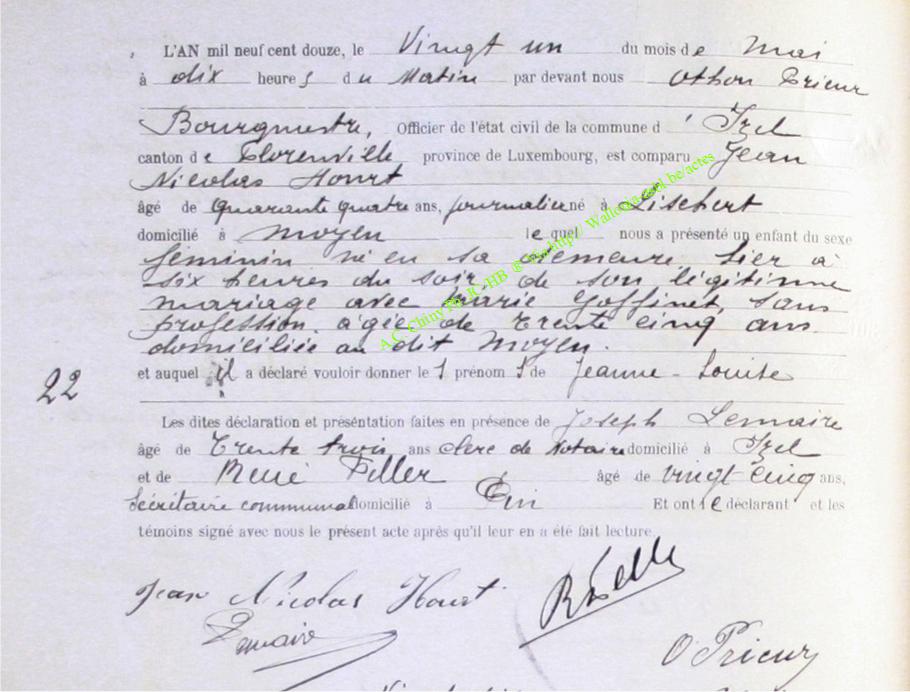 L'AN mil neuf cent douze, le Vingt un du mois de Mai
à dix heures du Matin par devant nous Othon Prieur
Bourgmestre, Officier de l'état civil de la commune d'Izel
canton de Florenville, province de Luxembourg, est comparu Jean
Nicolas Hourt
âgé de Quarante quatre ans, journalier né à Lischert
domicilié à Moyen lequel nous a présenté un enfant du sexe
féminin né en sa demeure hier à
six heures du soir, de son légitime
mariage avec Marie Goffinet, sans
profession, âgée de trente cinq ans
domiciliée au dit Moyen.
et auquel il a déclaré vouloir donner le s prénom s de Jeanne-Louise
22
Les dites déclaration et présentation faites en présence de Joseph Lemaire
âgé de Trente trois ans clerc de Notaire domicilié à Izel
et de René Peller âgé de vingt cinq ans,
Secrétaire communal domicilié à Pin Et ont le déclarant et les
témoins signé avec nous le présent acte après qu'il leur en a été fait lecture.
Jean Nicolas Hourt
Lemaire
O Prieur